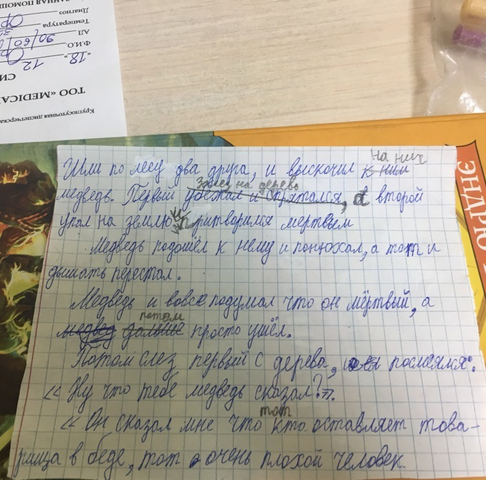 ТОО «MEDICA
Круглосуточная диспетчерская
Ф.И.О.
АД 90/60
Температура
Диагноз
ЭНДРЮ
на них
Шли по лесу два друга, и выскочил к ним
залез на дерево
медведь. Первый убежал и спрятался, а второй
упал на землю и притворился мертвым
Медведь подошёл к нему и понюхал, а тот и
дышать перестал.
Медведь и вовсе подумал что он мёртвый, а
потом
медвед дальше просто ушёл.
Потом слез первый с дерева, и посмеялся:
« Ну что тебе медведь сказал?».
тот
« Он сказал мне что кто оставляет това-
рища в беде, тот очень плохой человек